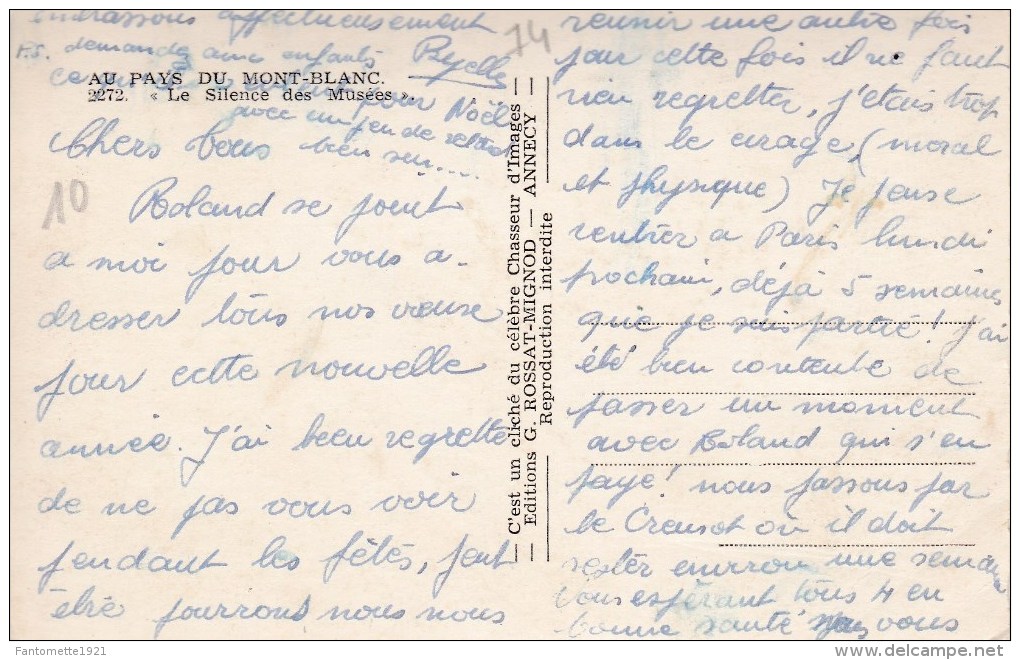 embrassons affectueusement
P.S. demande aux enfants
AU PAYS DU MONT-BLANC.
2272. « Le Silence des Musées ».
pour Noël
avec un jeu de
bien sur.....
Chers Vous
Roland se joint
a moi pour vous a-
dresser tous nos voeux
pour cette nouvelle
année. J'ai bien regretté
de ne pas vous voir
pendant les fêtes, peut
être pourrons nous nous
74
10
— C'est un cliché du célèbre Chasseur d'Images —
— Editions G. ROSSAT-MIGNOD — ANNECY —
Reproduction interdite
réunir une autre fois
pour cette fois il ne faut
rien regretter, j'étais trop
dans le cirage, (moral
et physique) Je pense
rentrer a Paris lundi
prochain, déjà 5 semaines
que je suis partie! J'ai
été bien contente de
passer un moment
avec Roland qui s'en
paye! nous passons par
le Creusot où il doit
rester environ une semaine
Vous espérant tous 4 en
bonne santé nous vous
Fantomette1921